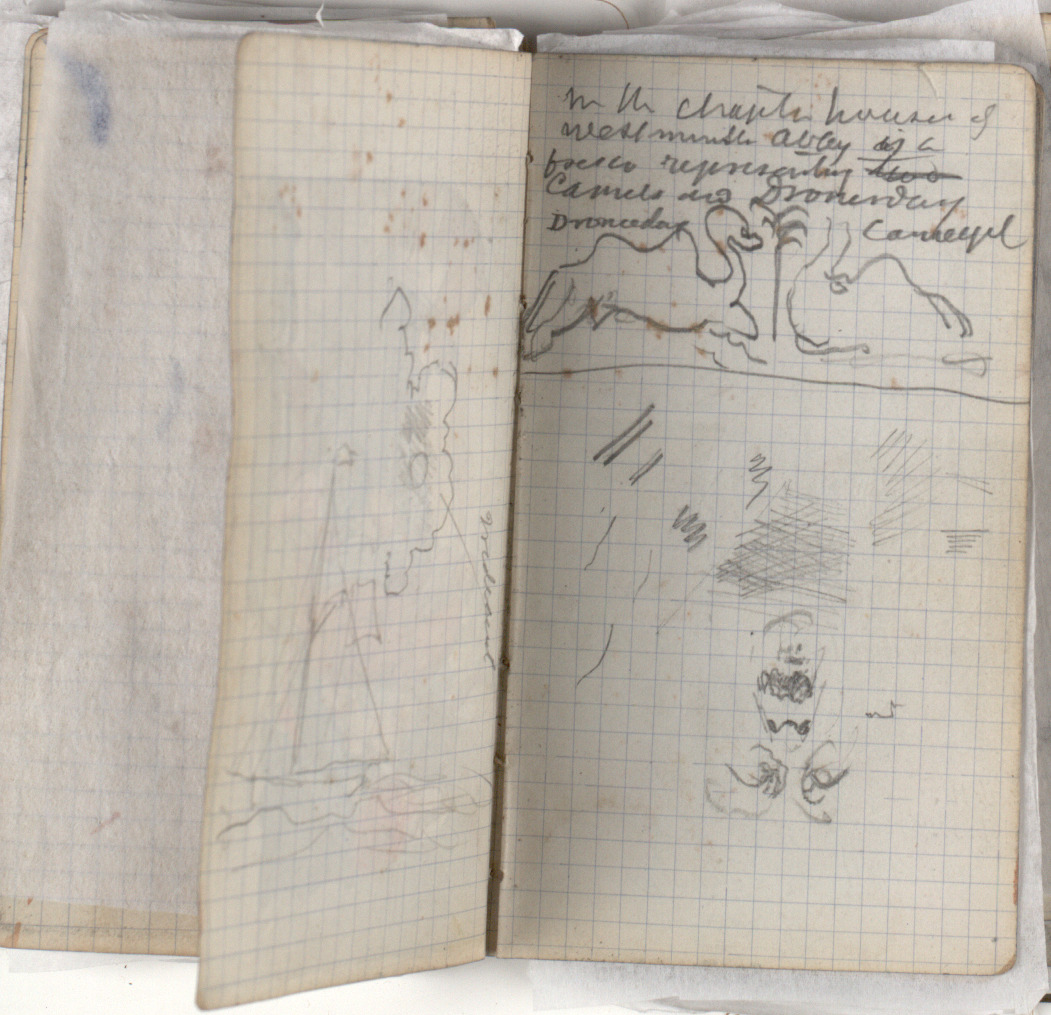 In the chapter house of
Westminster Abbey is a
fresco representing two
Camels and Dromerday
Dromeday
Cameyl